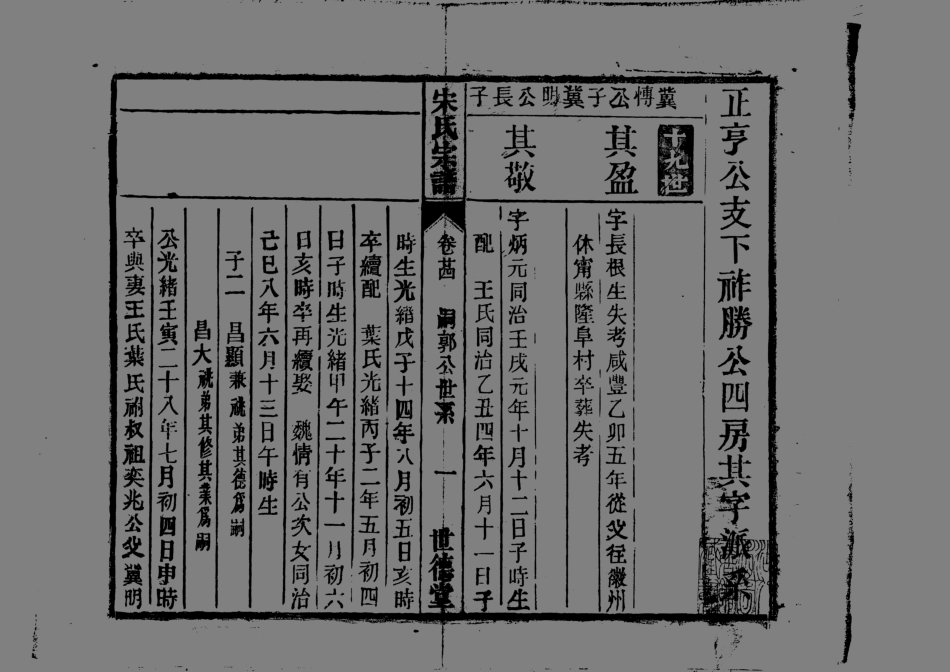 正亨公支下祚勝公四房其字派系
十九世
冀傳公子冀明公長子
其盈
字長根生失考咸豐乙卯五年從父往徽州
休甯縣隆阜村卒葬失考
其敬
字炳元同治壬戌元年十月十二日子時生
配　王氏同治乙丑四年六月十一日子
宋氏宗譜
卷茜　嗣郭公世系　一　世德堂
時生光緒戊子十四年八月初五日亥時
卒續配　葉氏光緒丙子二年五月初四
日子時生光緒甲午二十年十一月初六
日亥時卒再續娶　魏情有公次女同治
己巳八年六月十三日午時生
子二　昌顯兼祧弟其德爲嗣
昌大祧弟其修其業爲嗣
公光緒壬寅二十八年七月初四日申時
卒與妻王氏葉氏祔叔祖奕兆公父冀明